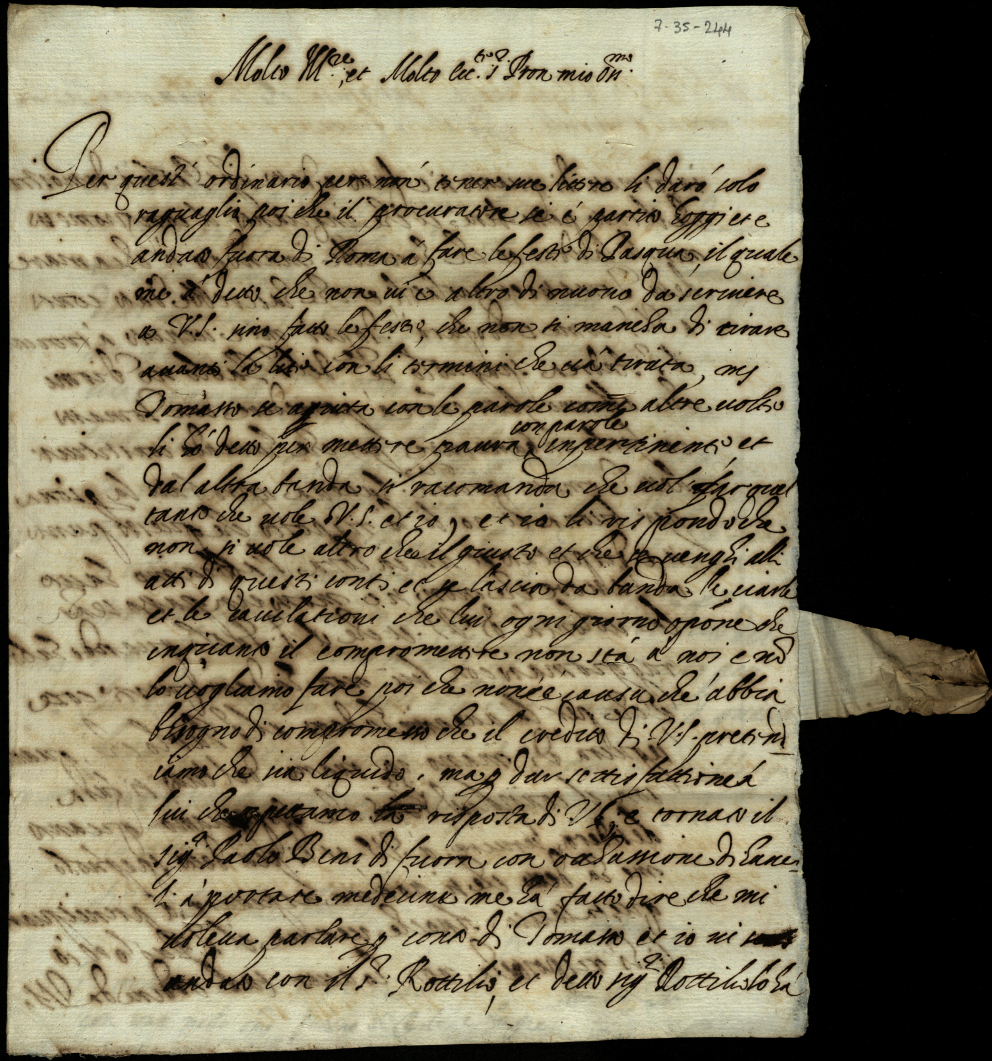 7-35-244
Molto Ill.re et Molto ecc.te S.r Pron mio on.mo
Per quest' ordinario per non tener sue littre li darò solo
raguaglio poi che il procuratore si è partito hoggi et è
andato fuora di Roma à fare le feste di Pasqua, il quale
mi à detto che non vi è altro di nuovo da scrivere
a V.S. sino fatto le feste, che non si mancha di tirare
avanti la lite con li termini che va tirata, ms
Tomasso se agiuta con le parole come altre volte
li hò detto per mettere paura, con parole impertinente, et
dal altra banda si racomanda che vol far
tanto che vole V.S. et io, et io li rispondo che
non si vole altro che il giusto et che se venghi alli
atti di questi conti et se lascia da banda le ciarle
et le cavilationi che lui ogni giorno opone che
inquanto il compromettere non stà à noi e nõ
lo vogliamo fare poi che non è causa che abbia
bisogno di compromesso che il credito di V.S. pretend
iamo che sia liquido, ma p dar sattisfattione à
lui che aspetamo la risposta di V.S., è tornato il
sig.r Paolo Beni di fuora con ochassione di haver
li à portare medecine me hà fatto dire che mi
voleva parlare p conto di Tomasso et io vi
andato con il S.r Rottilio, et detto sig.r Rottilio lo hà